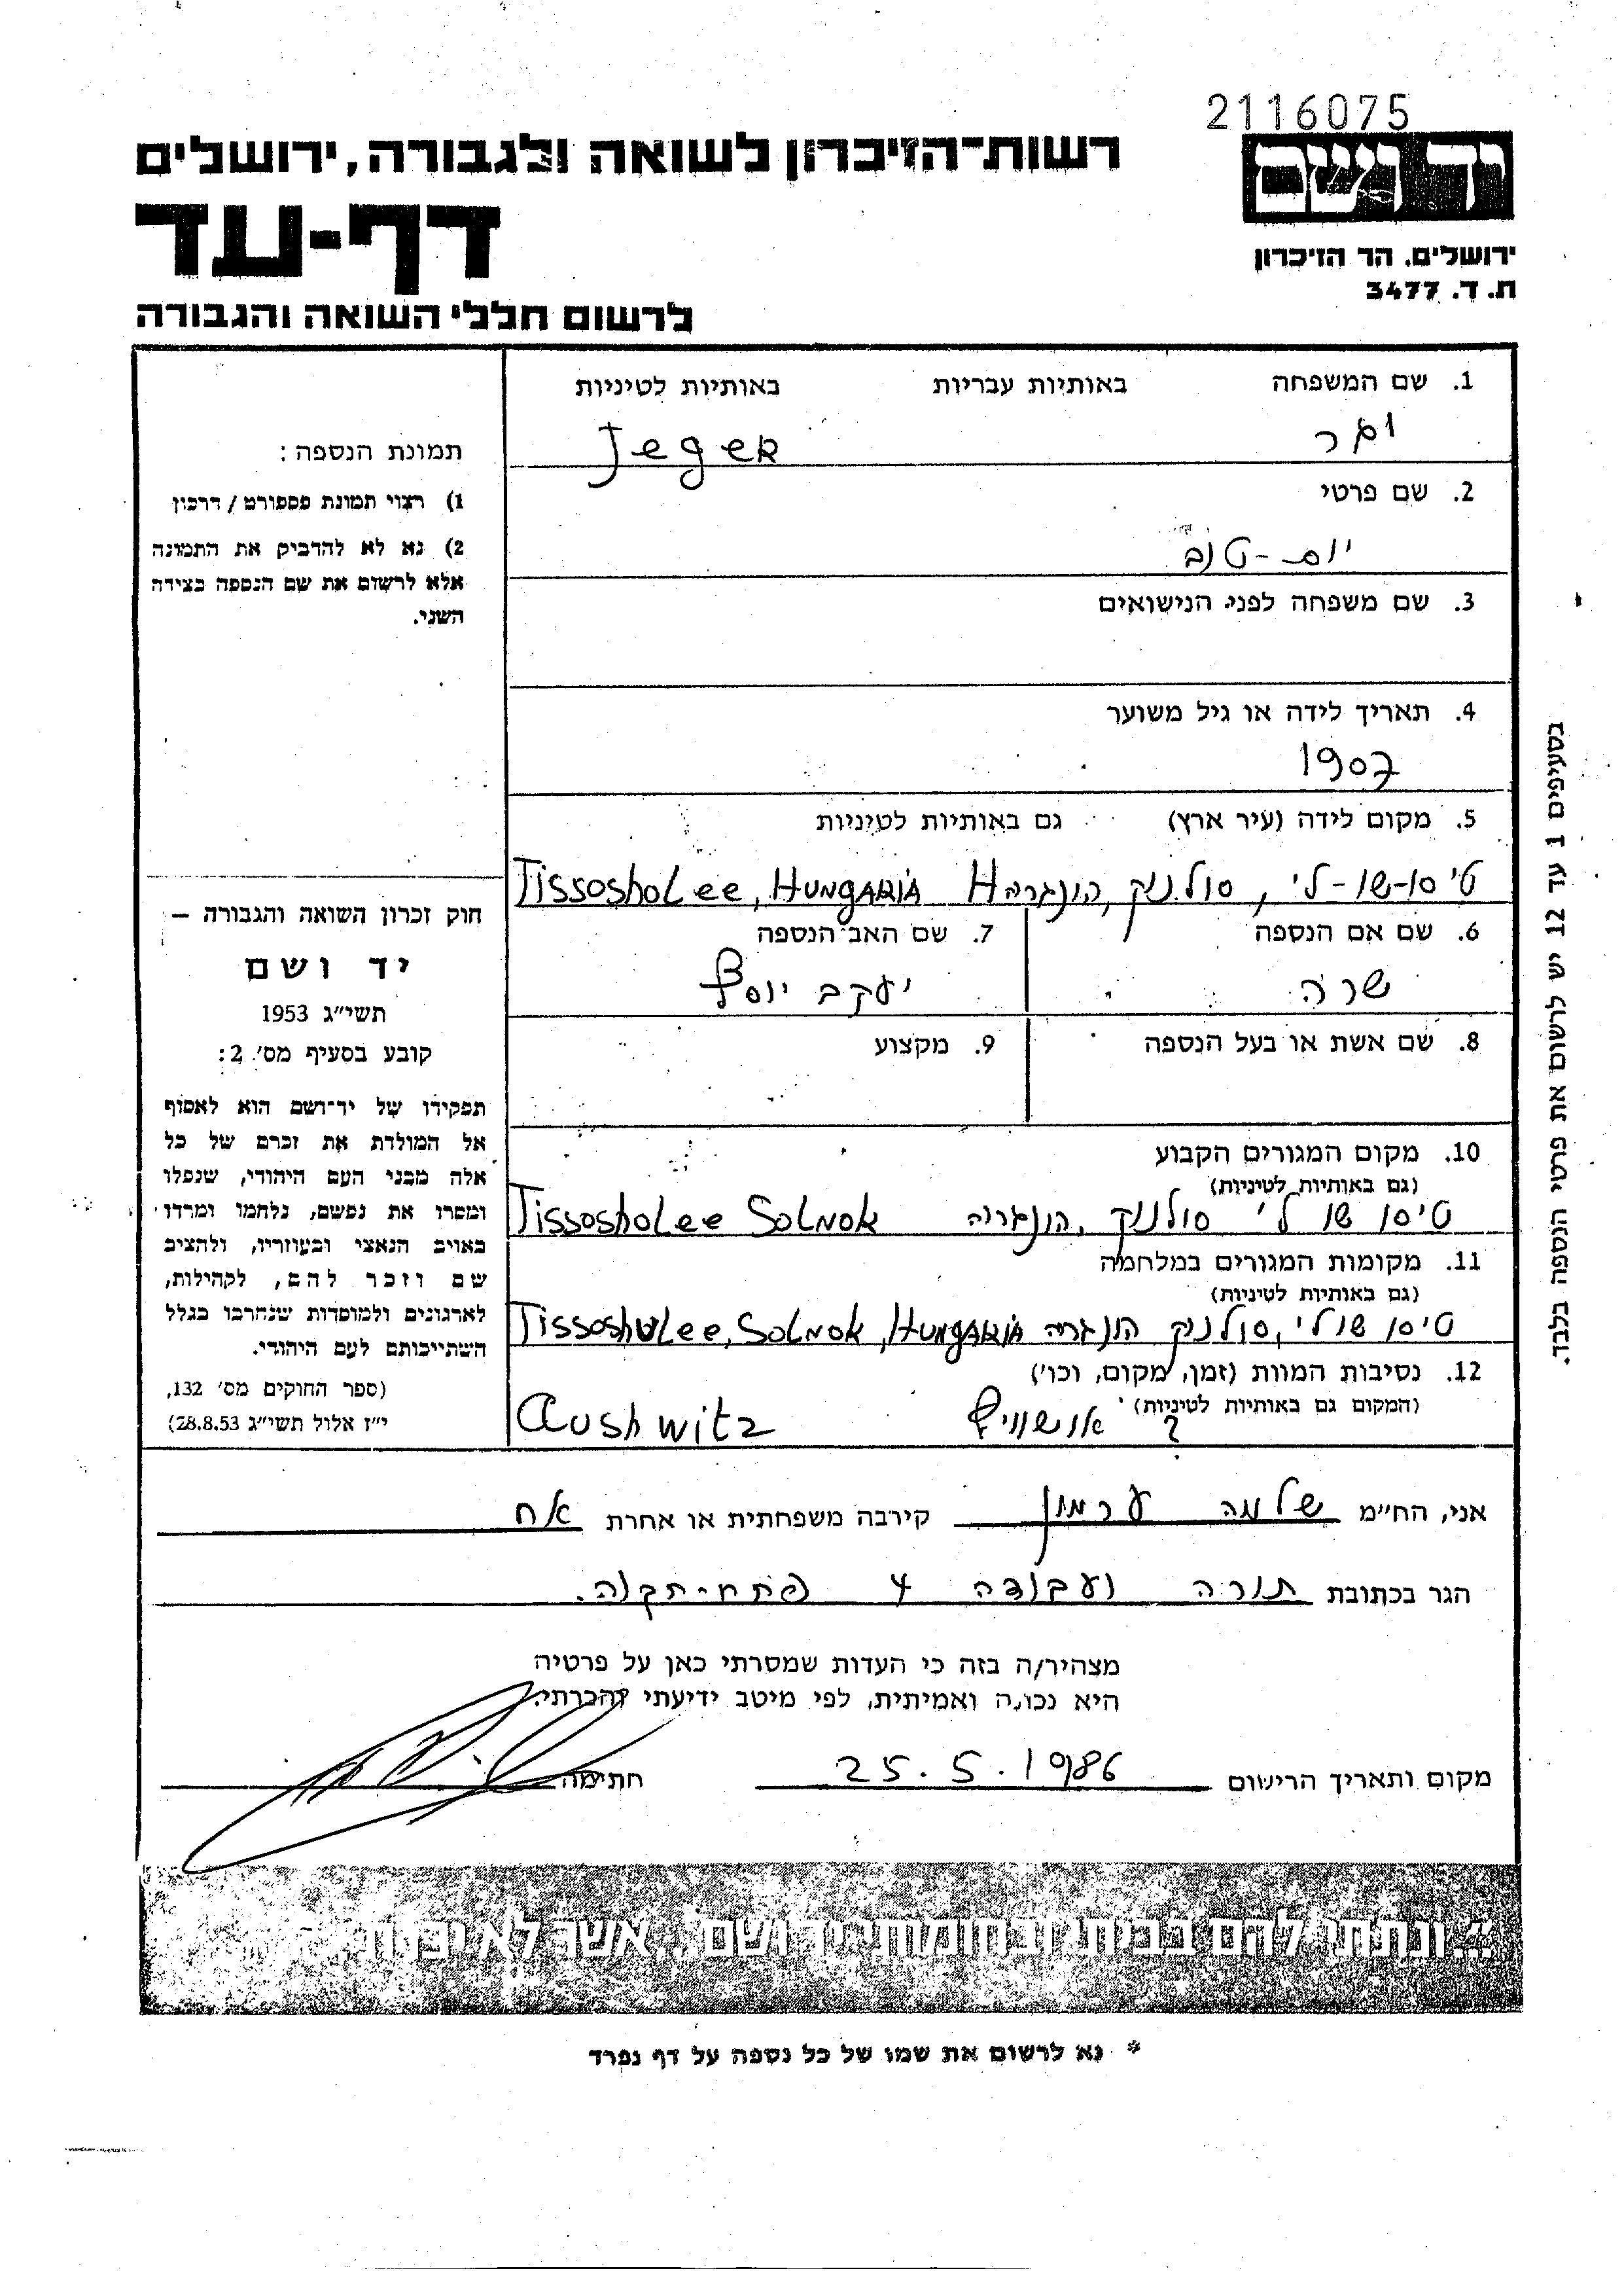 2116075
רשות-הזיכרון לשואה ולגבורה, ירושלים
יד ושם
דף-עד
ירושלים. הר הזיכרון
ת. ד. 3477
לרשום חללי השואה והגבורה
1. שם המשפחה באותיות עבריות באותיות לטיניות
Jeger
2. שם פרטי
יום-טוב
3. שם משפחה לפני הנישואים
4. תאריך לידה או גיל משוער
1907
5. מקום לידה (עיר ארץ) גם באותיות לטיניות
טיסו-שו-לי, סולנוק, הונגרה Tissosholee, HUNGARIA H
6. שם אם הנספה 7. שם האב הנספה
שרה יעקב יוסף
8. שם אשת או בעל הנספה 9. מקצוע
10. מקום המגורים הקבוע
(גם באותיות לטיניות)
טיסו שו לי סולנוק, הונגרוה Tissosholee Solnok
11. מקומות המגורים במלחמה
(גם באותיות לטיניות)
טיסו שולי, סולנוק הונגרה Tissosholee, Solnok, HUNGARIA
12. נסיבות המוות (זמן, מקום, וכו')
(המקום גם באותיות לטיניות)
? אושוויץ Aushwitz
תמונת הנספה:
1) רצוי תמונת פספורט / דרכון
2) נא לא להדביק את התמונה
אלא לרשום את שם הנספה בצידה
השני.
חוק זכרון השואה והגבורה –
יד ושם
תשי"ג 1953
קובע בסעיף מס' 2:
תפקידו של יד-ושם הוא לאסוף
אל המולדת את זכרם של כל
אלה מבני העם היהודי, שנפלו
ומסרו את נפשם, נלחמו ומרדו
באויב הנאצי ובעוזריו, ולהציב
שם וזכר להם, לקהילות,
לארגונים ולמוסדות שנחרבו בגלל
השתייכותם לעם היהודי.
(ספר החוקים מס' 132,
י"ז אלול תשי"ג 28.8.53)
בסעיפים 1 עד 12 יש לרשום את פרטי הנספה בלבד.
אני, הח"מ שלמה ערמון קירבה משפחתית או אחרת אח
הגר בכתובת תורה ועבודה 4 פתח-תקוה.
מצהיר/ה בזה כי העדות שמסרתי כאן על פרטיה
היא נכונה ואמיתית, לפי מיטב ידיעתי והכרתי.
מקום ותאריך הרישום 25.5.1986 חתימה
"...ונתתי להם בביתי ובחומותי יד ושם... אשר לא יכרת"
* נא לרשום את שמו של כל נספה על דף נפרד